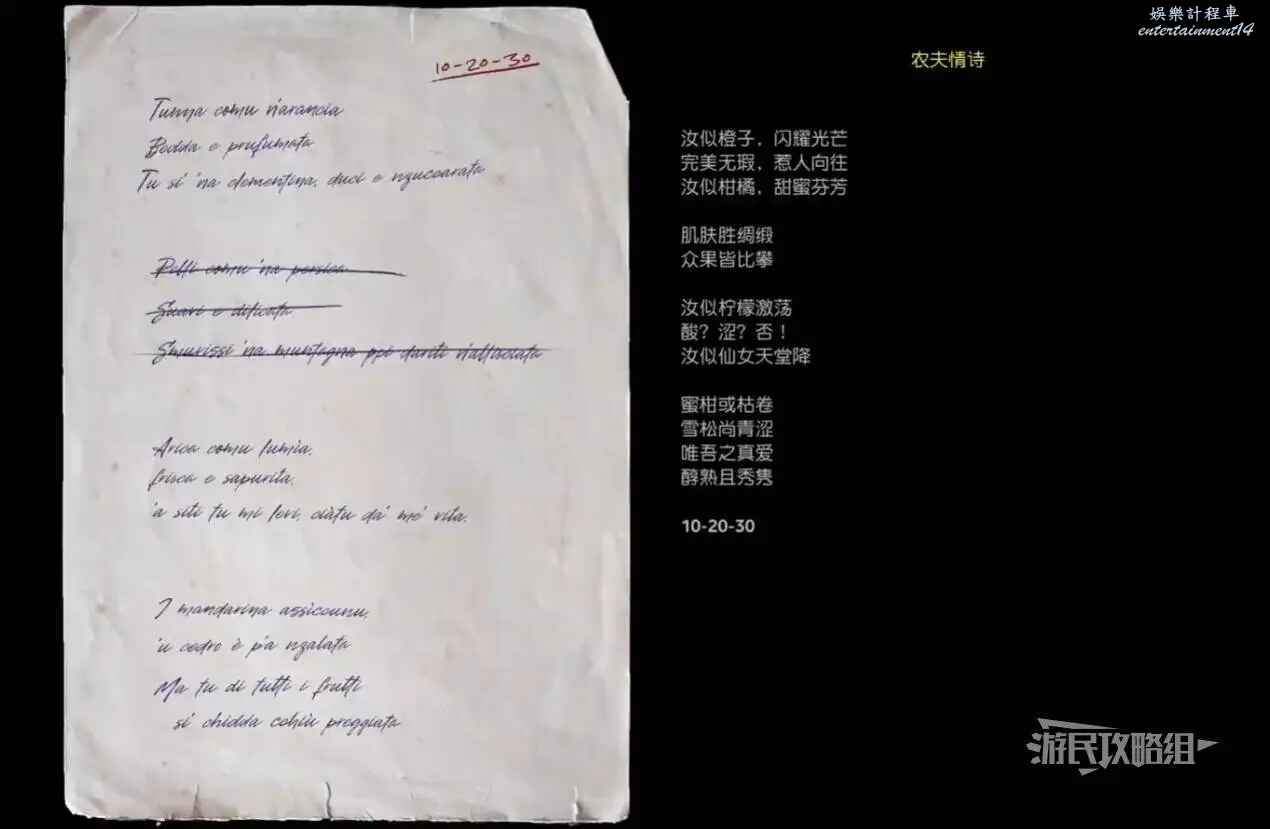 娛樂計程車
entertainment14
10-20-30
Tunna comu n'arancia
Bedda e prufumata
Tu si 'na clementina, duci e nzuccarata
Pilli comu 'na persica
Suavi e dilicata
Smurissi 'na muntagna ppi dariti n'alfaciata
Arisca comu lumia,
frisca e sapurita,
'a siti tu mi levi, ciàtu da' me' vita.
I mandarina assiccunu,
'u cedro è p'a nzalata
Ma tu di tutti i frutti
si chidda cchiù preggiata
农夫情诗
汝似橙子，闪耀光芒
完美无瑕，惹人向往
汝似柑橘，甜蜜芬芳
肌肤胜绸缎
众果皆比攀
汝似柠檬激荡
酸？涩？否！
汝似仙女天堂降
蜜柑或枯卷
雪松尚青涩
唯吾之真爱
醇熟且秀隽
10-20-30
游民攻略组